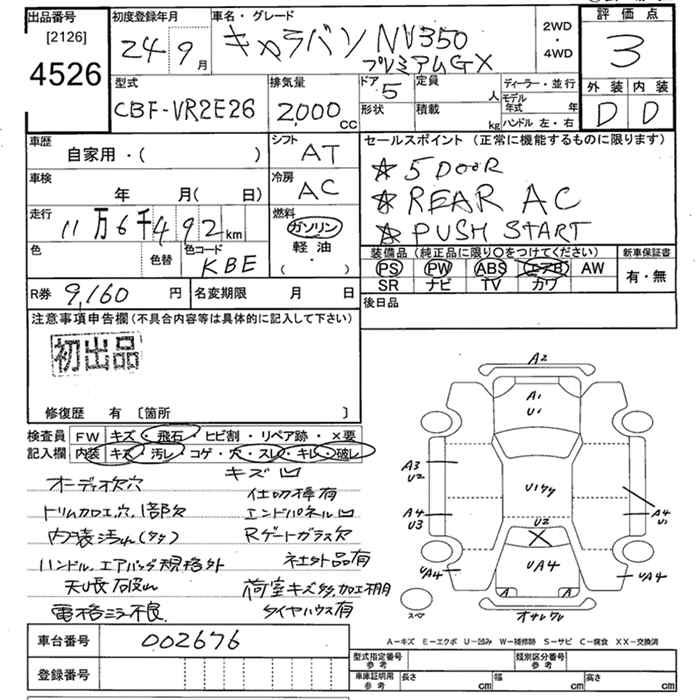 出品番号 [2126] 4526
初度登録年月 24 9月
車名・グレード キャラバン NV350 プレミアムGX
2WD・4WD
評価点 3
外装 D 内装 D
型式 CBF-VR2E26
排気量 2,000cc
ドア 5 形状
定員 人 積載 kg
ディーラー・並行
モデル年式 年
ハンドル 左・右
車歴 自家用・( )
シフト AT
車検 年 月( 日)
冷房 AC
走行 11万6千492km
燃料 ガソリン 軽油 ( ・ )
色 色替
色コード KBE
セールスポイント (正常に機能するものに限ります)
☆ 5 DOOR
☆ REAR AC
☆ PUSH START
装備品 (純正品に限り○をつけてください)
PS PW ABS エアB AW
SR ナビ TV カワ
新車保証書 有・無
R券 9,160円
名変期限 月 日
後日品
注意事項申告欄 (不具合内容等は具体的に記入して下さい)
初出品
修復歴 有 〔箇所 〕
検査員記入欄
FW キズ・飛石・ヒビ割・リペア跡・×要
内装 キズ・汚レ・コゲ・穴・スレ・キレ・破レ
キズ凹
オーディオ欠穴
仕切棒有
トリム加工穴、1部欠
エンドパネル凹
内装汚れ(タタ)
Rゲートガラス欠
ハンドル、エアバッグ規格外
社外品有
荷室キズ多,加工棚
電格ミラー不良
タイヤハウス有
A2
A1
U1
A3
U2
A4
U3
U2
UA4
A4
U1
UA4
UA4
A
A
スペア
A−キズ E−エクボ U−凹み W−補修跡 S−サビ C−腐食 XX−交換済
車台番号 002676
登録番号
型式指定番号 参考
類別区分番号 参考
車庫証明用 参考 長さ cm 幅 cm 高さ cm